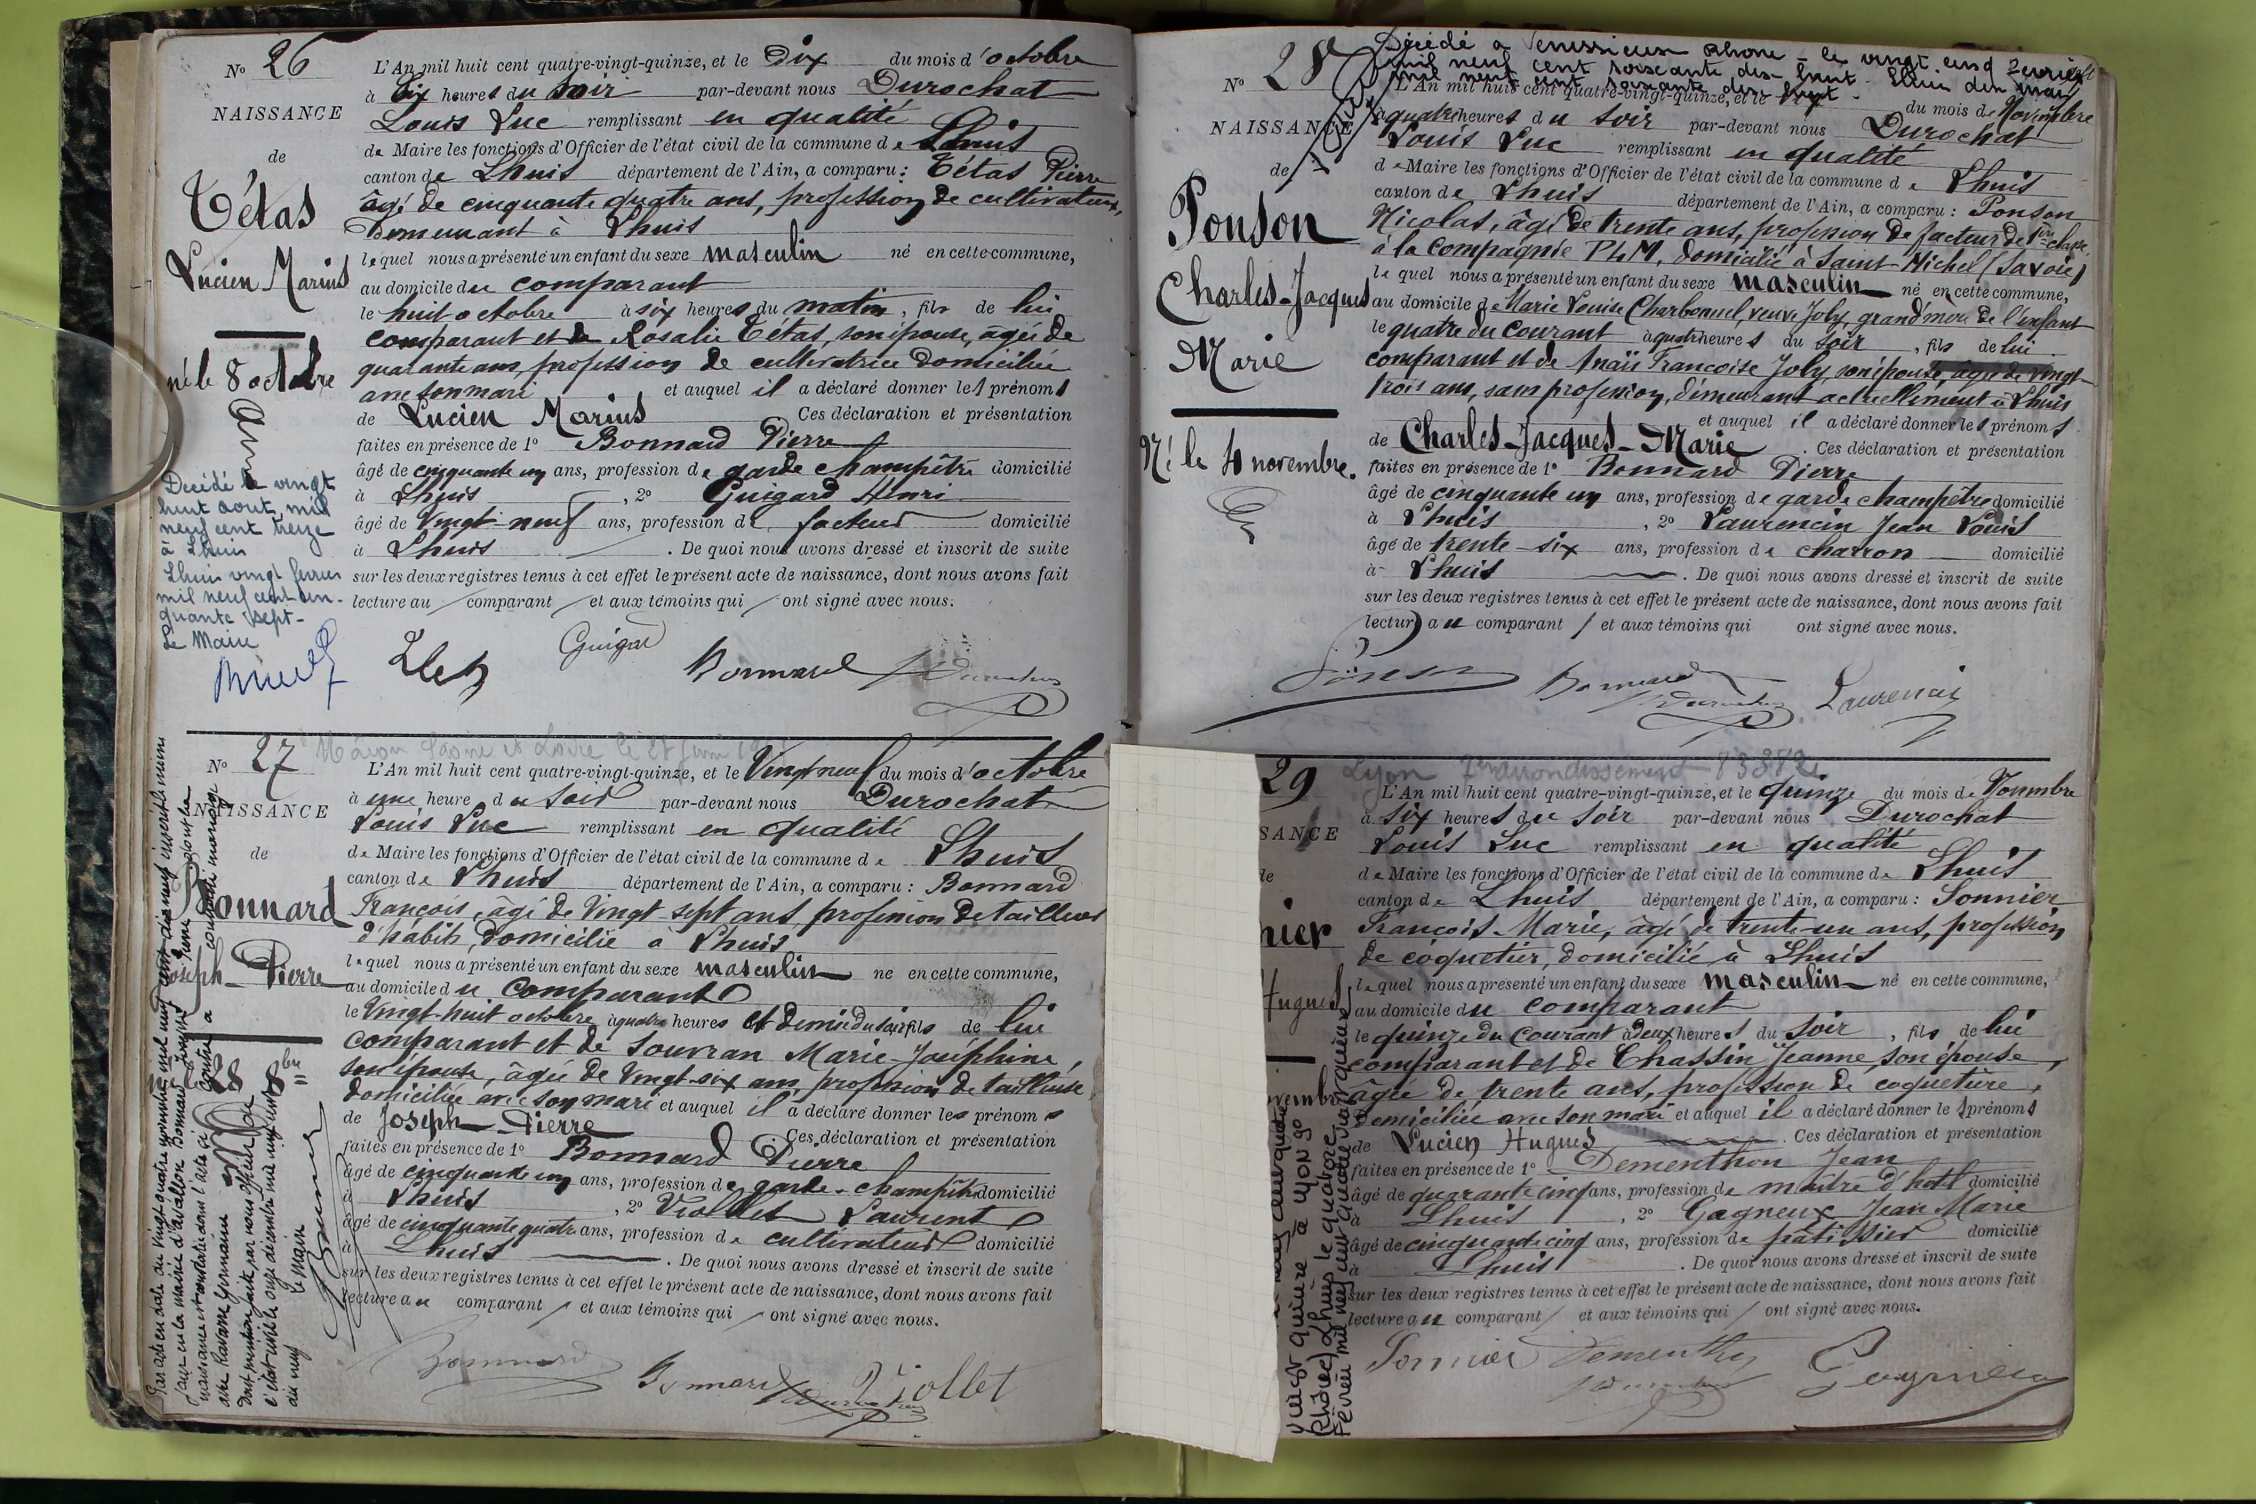 N° 26
NAISSANCE
de
Tétas
Lucien Marius
né le 8 octobre
Décédé le vingt
huit août mil
neuf cent treize
à Lhuis
Lhuis vingt février
mil neuf cent cin-
quante sept-
Le Maire
L'An mil huit cent quatre-vingt-quinze, et le dix du mois d'octobre
à six heures du soir par-devant nous Durochat
Louis Luc remplissant en qualité
de Maire les fonctions d'Officier de l'état civil de la commune de Lhuis
canton de Lhuis département de l'Ain, a comparu : Tétas Pierre
âgé de cinquante quatre ans, profession de cultivateur,
Demeurant à Lhuis
lequel nous a présenté un enfant du sexe masculin né en cette commune,
au domicile du comparant
le huit octobre à six heures du matin, fils de lui
comparant et de Rosalie Tétas, son épouse, âgée de
quarante ans, profession de cultivatrice domiciliée
avec son mari et auquel il a déclaré donner les prénoms
de Lucien Marius Ces déclaration et présentation
faites en présence de 1° Bonnard Pierre
âgé de cinquante un ans, profession de garde champêtre domicilié
à Lhuis, 2° Guigard Henri
âgé de vingt-neuf ans, profession de facteur domicilié
à Lhuis. De quoi nous avons dressé et inscrit de suite
sur les deux registres tenus à cet effet le présent acte de naissance, dont nous avons fait
lecture au comparant et aux témoins qui ont signé avec nous.
Guigard Bonnard Durochat
N° 27
NAISSANCE
de
Bonnard
Joseph-Pierre
28 8bre
Mâcon Saône et Loire le 27 juin
L'An mil huit cent quatre-vingt-quinze, et le Vingt neuf du mois d'octobre
à une heure du soir par-devant nous Durochat
Louis Luc remplissant en qualité
de Maire les fonctions d'Officier de l'état civil de la commune de Lhuis
canton de Lhuis département de l'Ain, a comparu : Bonnard
François, âgé de Vingt-sept ans, profession de tailleur
d'habits, domicilié à Lhuis
lequel nous a présenté un enfant du sexe masculin né en cette commune,
au domicile du comparant
le Vingt-huit octobre à quatre heures et demie du soir fils de lui
comparant et de Souvran Marie-Joséphine,
son épouse, âgée de Vingt-six ans, profession de tailleuse
domiciliée avec son mari et auquel il a déclaré donner les prénoms
de Joseph-Pierre Ces déclaration et présentation
faites en présence de 1° Bonnard Pierre
âgé de cinquante un ans, profession de garde-champêtre domicilié
à Lhuis, 2° Viollet Laurent
âgé de cinquante quatre ans, profession de cultivateur domicilié
à Lhuis. De quoi nous avons dressé et inscrit de suite
sur les deux registres tenus à cet effet le présent acte de naissance, dont nous avons fait
lecture au comparant et aux témoins qui ont signé avec nous.
Bonnard Bonnard Durochat Viollet
N° 28
NAISSANCE
de
Ponson
Charles-Jacques
Marie
Né le 4 novembre.
Décédé à Venissieux Rhone - le vingt cinq février
mil neuf cent soixante dix-huit. Lhuis dix mars
mil neuf cent soixante dix huit.
L'An mil huit cent quatre-vingt-quinze, et le du mois de Novembre
à quatre heures du soir par-devant nous Durochat
Louis Luc remplissant en qualité
de Maire les fonctions d'Officier de l'état civil de la commune de Lhuis
canton de Lhuis département de l'Ain, a comparu : Ponson
Nicolas, âgé de trente ans, profession de facteur de 1ère classe
à la Compagnie P L M, domicilié à Saint-Michel (Savoie)
lequel nous a présenté un enfant du sexe masculin né en cette commune,
au domicile de Marie Louise Charbonnel, veuve Joly, grand'mère de l'enfant
le quatre du courant à quatre heures du soir, fils de lui
comparant et de Anaïs Françoise Joly, son épouse, âgée de vingt-
trois ans, sans profession, demeurant actuellement à Lhuis
et auquel il a déclaré donner les prénoms
de Charles-Jacques-Marie. Ces déclaration et présentation
faites en présence de 1° Bonnard Pierre
âgé de cinquante un ans, profession de garde champêtre domicilié
à Lhuis, 2° Laurencin Jean Louis
âgé de trente-six ans, profession de charron domicilié
à Lhuis. De quoi nous avons dressé et inscrit de suite
sur les deux registres tenus à cet effet le présent acte de naissance, dont nous avons fait
lecture au comparant et aux témoins qui ont signé avec nous.
Ponson Bonnard Durochat Laurencin
29
SANCE
de
nier
Hugues
Lyon 7e arrondissement
L'An mil huit cent quatre-vingt-quinze, et le quinze du mois de Novembre
à six heures du soir par-devant nous Durochat
Louis Luc remplissant en qualité
de Maire les fonctions d'Officier de l'état civil de la commune de Lhuis
canton de Lhuis département de l'Ain, a comparu : Sonnier
François-Marie, âgé de trente-un ans, profession
de coquetier, domicilié à Lhuis
lequel nous a présenté un enfant du sexe masculin né en cette commune,
au domicile du comparant
le quinze du courant à deux heures du soir, fils de lui
comparant et de Chassin Jeanne, son épouse,
âgée de trente ans, profession de coquetière,
domiciliée avec son mari et auquel il a déclaré donner les prénoms
de Lucien Hugues. Ces déclaration et présentation
faites en présence de 1° Dementhon Jean
âgé de quarante cinq ans, profession de maître d'hôtel domicilié
à Lhuis, 2° Gagneux Jean Marie
âgé de cinquante cinq ans, profession de pâtissier domicilié
à Lhuis. De quoi nous avons dressé et inscrit de suite
sur les deux registres tenus à cet effet le présent acte de naissance, dont nous avons fait
lecture au comparant et aux témoins qui ont signé avec nous.
Sonnier Dementhon
Durochat Gagneux